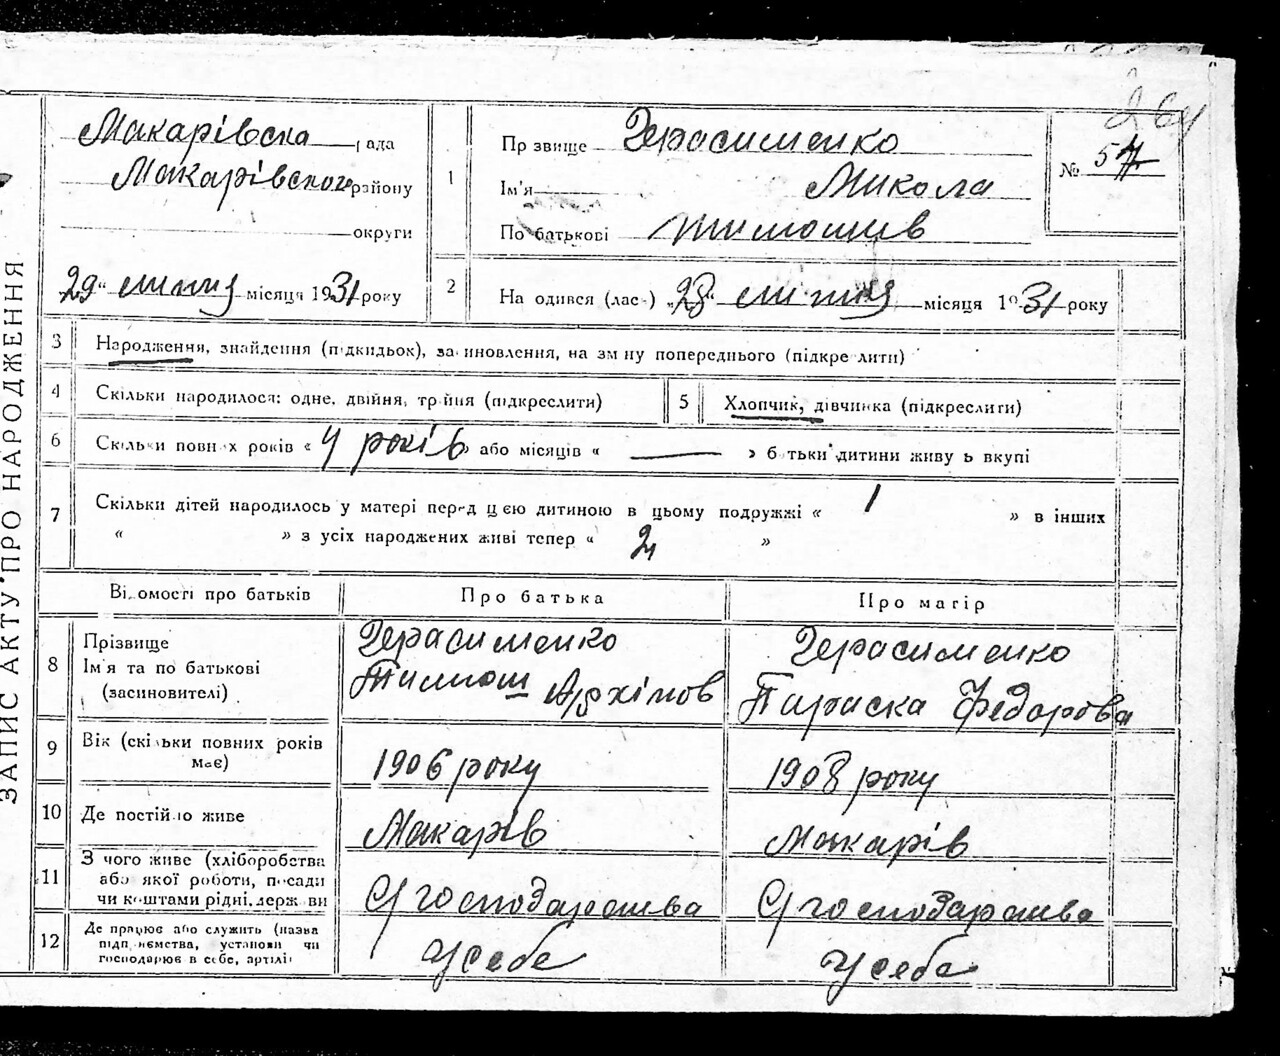 264
Макарівська рада
Макарівського району
округи
29 " липня місяця 1931 року
1
Прізвище Герасименко
Ім'я Микола
По батькові Тимошів
№ 57
2
Народився (лась) „28" липня місяця 1931 року
ЗАПИС АКТУ ПРО НАРОДЖЕННЯ
3 Народження, знайдення (підкидьок), засиновлення, на зміну попереднього (підкреслити)
4 Скільки народилося: одне, двійня, тройня (підкреслити)
5 Хлопчик, дівчинка (підкреслити)
6 Скільки повних років « 4 років » або місяців « — » батьки дитини живуть вкупі
7 Скільки дітей народилось у матері перед цією дитиною в цьому подружжі « 1 » в інших
« » з усіх народжених живі тепер « 2 »
Відомості про батьків
Про батька
Про матір
8 Прізвище
Ім'я та по батькові
(засиновителі)
Герасименко
Тимош Архіпов
Герасименко
Параска Федорова
9 Вік (скільки повних років
має)
1906 року
1908 року
10 Де постійно живе
Макарів
Макарів
11 З чого живе (хліборобства
або якої роботи, посади
чи коштами рідні, держави
С/господарства
С/господарства
12 Де працює або служить (назва
підприємства, установи чи
господарює в себе, артілі)
У себе
У себе